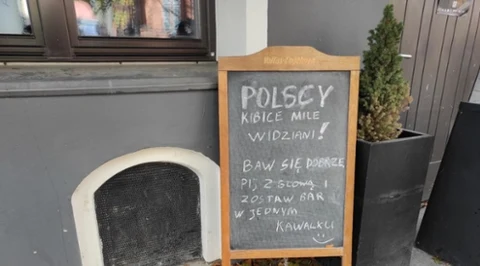 POLSCY
KIBICE MILE
WIDZIANI!
BAW SIĘ DOBRZE
PIJ Z SŁOWĄ I
ZOSTAW BAR
W JEDNYM
KAWAŁKU